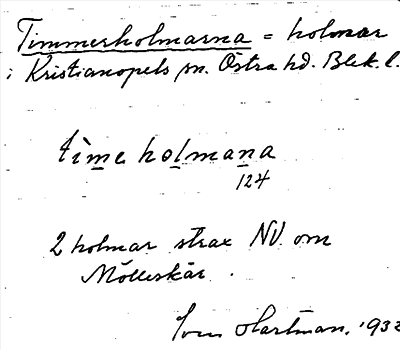 Timmerholmarna = holmar
i Kristianopels sn. Östra hd. Blek. l.
tìme holmana
124
2 holmar strax NV. om
Mölleskär.
Sven Hartman, 1932